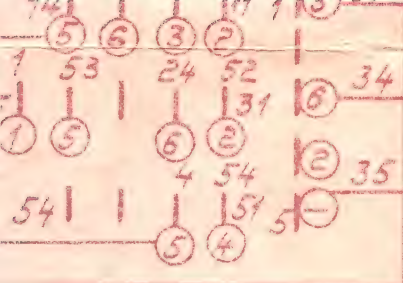 5 6 3 2
1 53 24 52
31 6 34
1 5 6 2
2
4 54 35
54 51 5
5 4